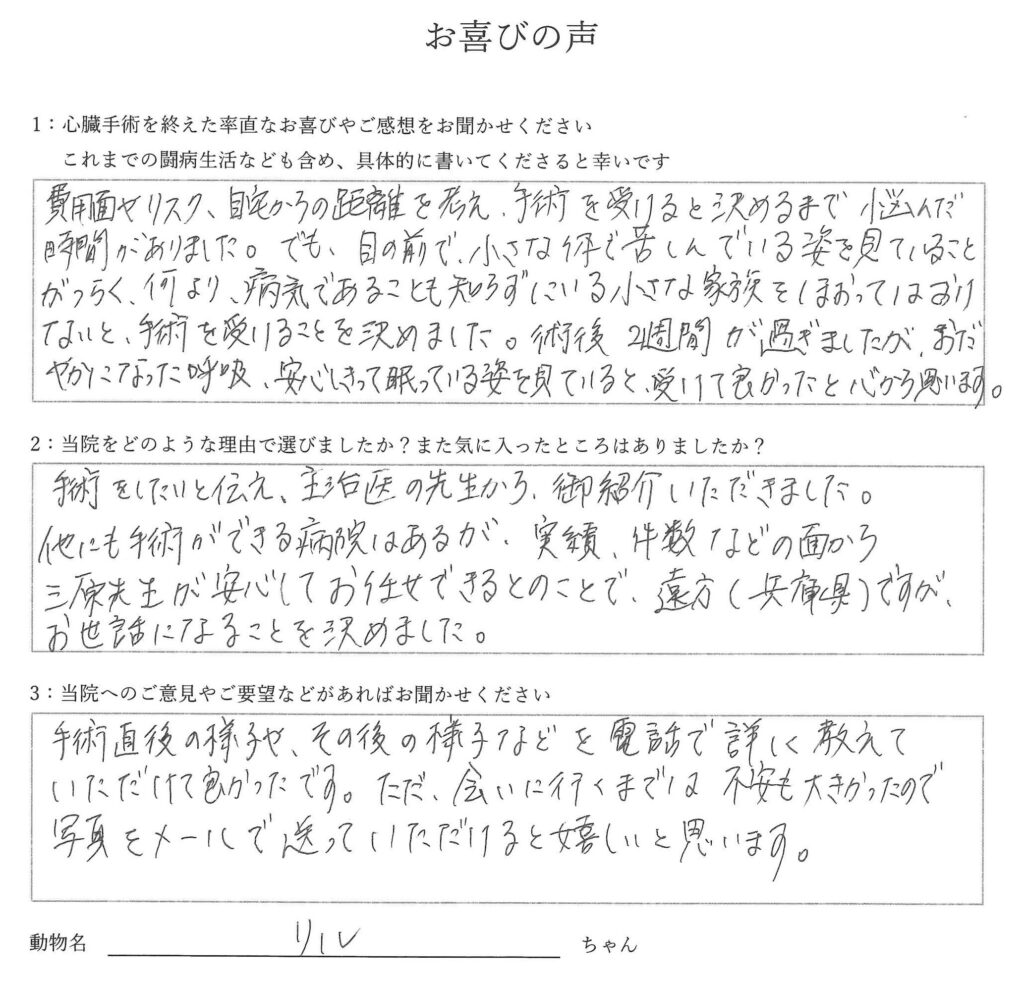 お喜びの声
1：心臓手術を終えた率直なお喜びやご感想をお聞かせください
これまでの闘病生活なども含め、具体的に書いてくださると幸いです
費用面やリスク、自宅からの距離を考え、手術を受けると決めるまで悩んだ
時間がありました。でも、目の前で、小さな体で苦しんでいる姿を見ていること
がつらく、何より、病気であることも知らずにいる小さな家族をほおってはおけ
ないと、手術を受けることを決めました。術後2週間が過ぎましたが、おだ
やかになった呼吸、安心しきって眠っている姿を見ていると、受けて良かったと心から思います。
2：当院をどのような理由で選びましたか？また気に入ったところはありましたか？
手術をしたいと伝え、主治医の先生から、御紹介いただきました。
他にも手術ができる病院はあるが、実績、件数などの面から
三原先生が安心してお任せできるとのことで、遠方（兵庫県）ですが、
お世話になることを決めました。
3：当院へのご意見やご要望などがあればお聞かせください
手術直後の様子や、その後の様子などを電話で詳しく教えて
いただけて良かったです。ただ、会いに行くまでは不安も大きかったので
写真をメールで送っていただけると嬉しいと思います。
動物名 リル ちゃん